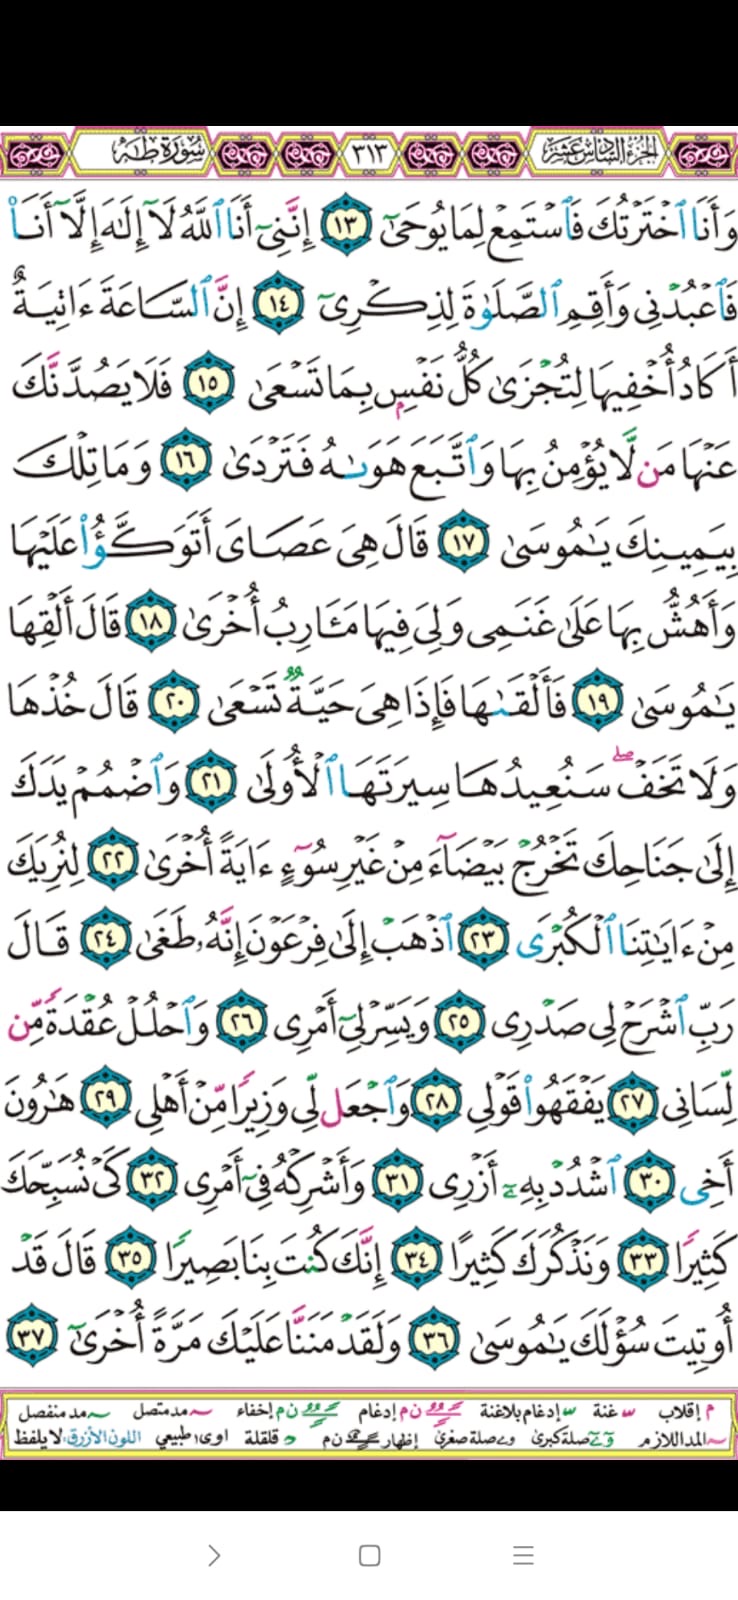 الجزء السادس عشر ٣١٣ سورة طه
وَأَنَا ٱخْتَرْتُكَ فَٱسْتَمِعْ لِمَا يُوحَىٰٓ ١٣ إِنَّنِىٓ أَنَا ٱللَّهُ لَآ إِلَٰهَ إِلَّآ أَنَا۠
فَٱعْبُدْنِى وَأَقِمِ ٱلصَّلَوٰةَ لِذِكْرِىٓ ١٤ إِنَّ ٱلسَّاعَةَ ءَاتِيَةٌ
أَكَادُ أُخْفِيهَا لِتُجْزَىٰ كُلُّ نَفْسٍۭ بِمَا تَسْعَىٰ ١٥ فَلَا يَصُدَّنَّكَ
عَنْهَا مَن لَّا يُؤْمِنُ بِهَا وَٱتَّبَعَ هَوَىٰهُ فَتَرْدَىٰ ١٦ وَمَا تِلْكَ
بِيَمِينِكَ يَٰمُوسَىٰ ١٧ قَالَ هِىَ عَصَاىَ أَتَوَكَّؤُا۟ عَلَيْهَا
وَأَهُشُّ بِهَا عَلَىٰ غَنَمِى وَلِىَ فِيهَا مَـَٔارِبُ أُخْرَىٰ ١٨ قَالَ أَلْقِهَا
يَٰمُوسَىٰ ١٩ فَأَلْقَىٰهَا فَإِذَا هِىَ حَيَّةٌ تَسْعَىٰ ٢٠ قَالَ خُذْهَا
وَلَا تَخَفْ ۖ سَنُعِيدُهَا سِيرَتَهَا ٱلْأُولَىٰ ٢١ وَٱضْمُمْ يَدَكَ
إِلَىٰ جَنَاحِكَ تَخْرُجْ بَيْضَآءَ مِنْ غَيْرِ سُوٓءٍ ءَايَةً أُخْرَىٰ ٢٢ لِنُرِيَكَ
مِنْ ءَايَٰتِنَا ٱلْكُبْرَى ٢٣ ٱذْهَبْ إِلَىٰ فِرْعَوْنَ إِنَّهُۥ طَغَىٰ ٢٤ قَالَ
رَبِّ ٱشْرَحْ لِى صَدْرِى ٢٥ وَيَسِّرْ لِىٓ أَمْرِى ٢٦ وَٱحْلُلْ عُقْدَةً مِّن
لِّسَانِى ٢٧ يَفْقَهُوا۟ قَوْلِى ٢٨ وَٱجْعَل لِّى وَزِيرًا مِّنْ أَهْلِى ٢٩ هَٰرُونَ
أَخِى ٣٠ ٱشْدُدْ بِهِۦٓ أَزْرِى ٣١ وَأَشْرِكْهُ فِىٓ أَمْرِى ٣٢ كَىْ نُسَبِّحَكَ
كَثِيرًا ٣٣ وَنَذْكُرَكَ كَثِيرًا ٣٤ إِنَّكَ كُنتَ بِنَا بَصِيرًا ٣٥ قَالَ قَدْ
أُوتِيتَ سُؤْلَكَ يَٰمُوسَىٰ ٣٦ وَلَقَدْ مَنَنَّا عَلَيْكَ مَرَّةً أُخْرَىٰٓ ٣٧
م إقلاب غنة إدغام بلاغنة ن م إدغام ن م إخفاء مد متصل مد منفصل
المد اللازم صلة كبرى صلة صغرى إظهار ن م قلقلة اوى طبيعي اللون الأزرق لا يلفظ